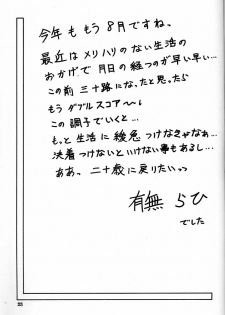 今年ももう8月ですね。
最近はメリハリのない生活の
おかげで月日の経つのが早い早い…
この前三十路になったと思ったら
もうダブルスコア〜!
この調子でいくと…
もっと生活に緩急つけなきゃなぁ…
決着つけないといけない事もあるし…
ああ、二十歳に戻りたいっ
有無らひ
でした
33